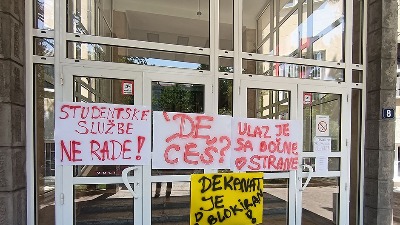 STUDENTSKE
SLUŽBE
NE RADE!
'DE
ĆEŠ?
ULAZ JE
SA BOČNE
STRANE
DEKANAT
JE
BLOKIRAN
B